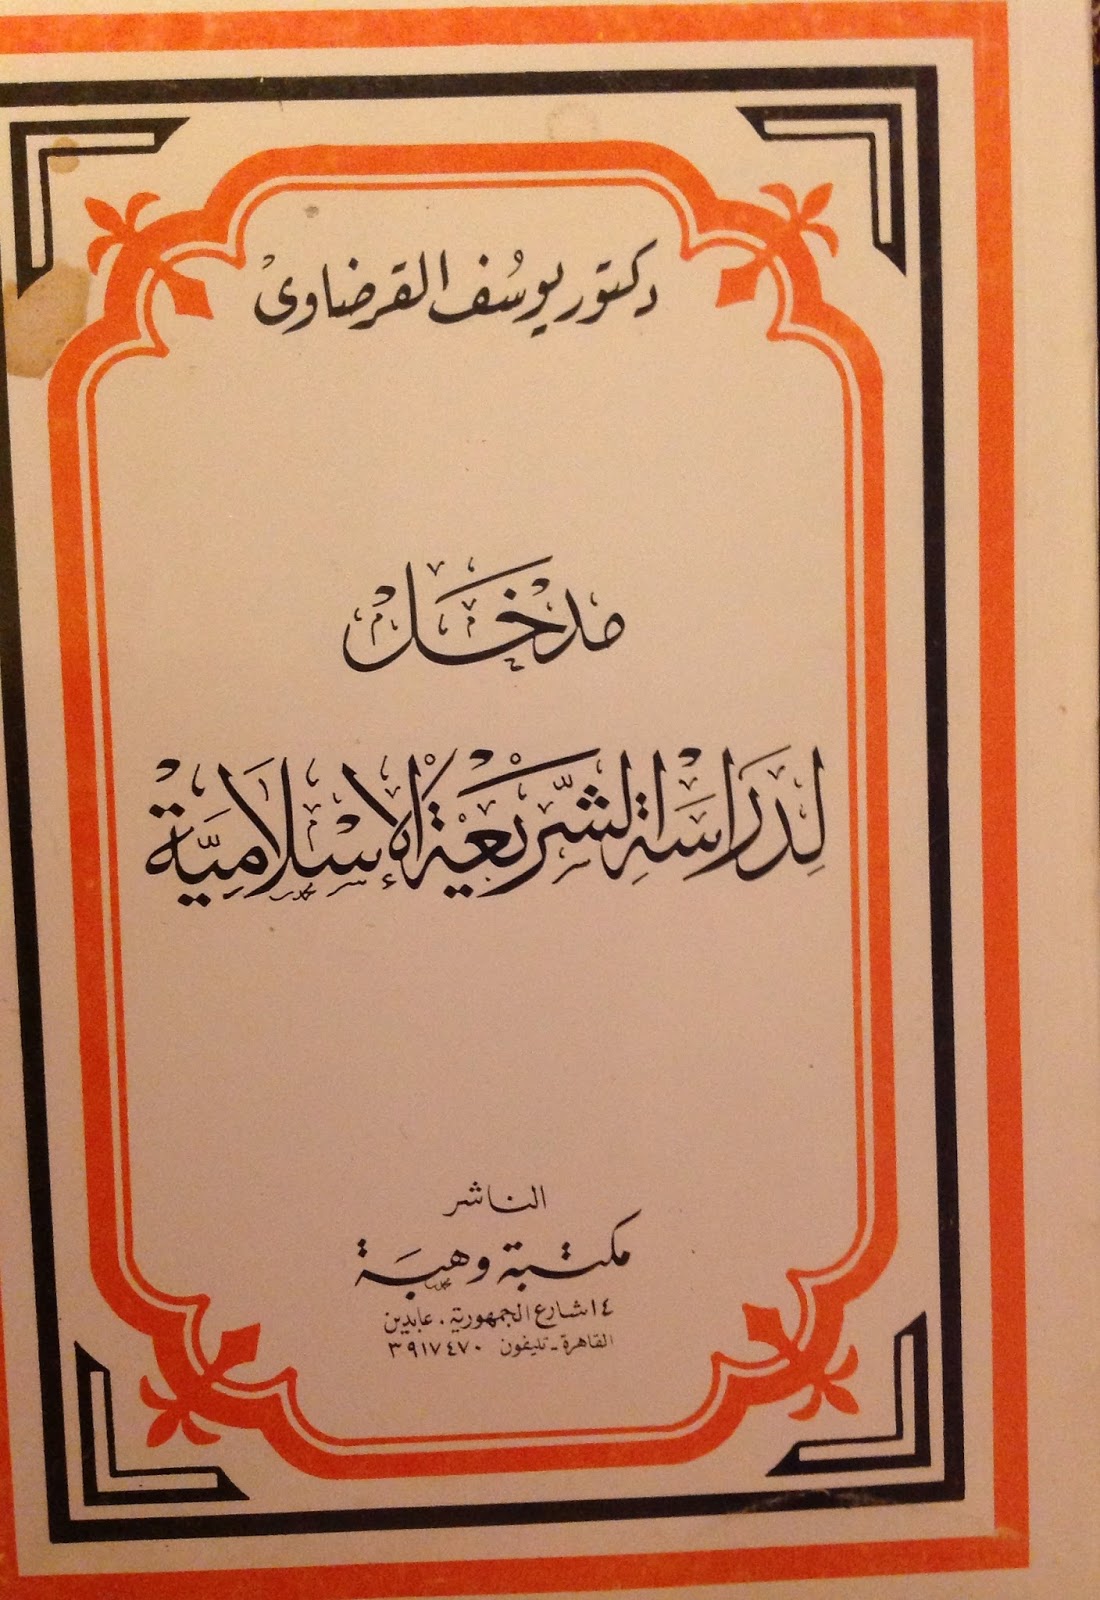 دكتور يوسف القرضاوى
مدخل
لدراسة الشريعة الإسلامية
الناشر
مكتبة وهبة
١٤ شارع الجمهورية . عابدين
القاهرة - تليفون ٣٩١٧٤٧٠